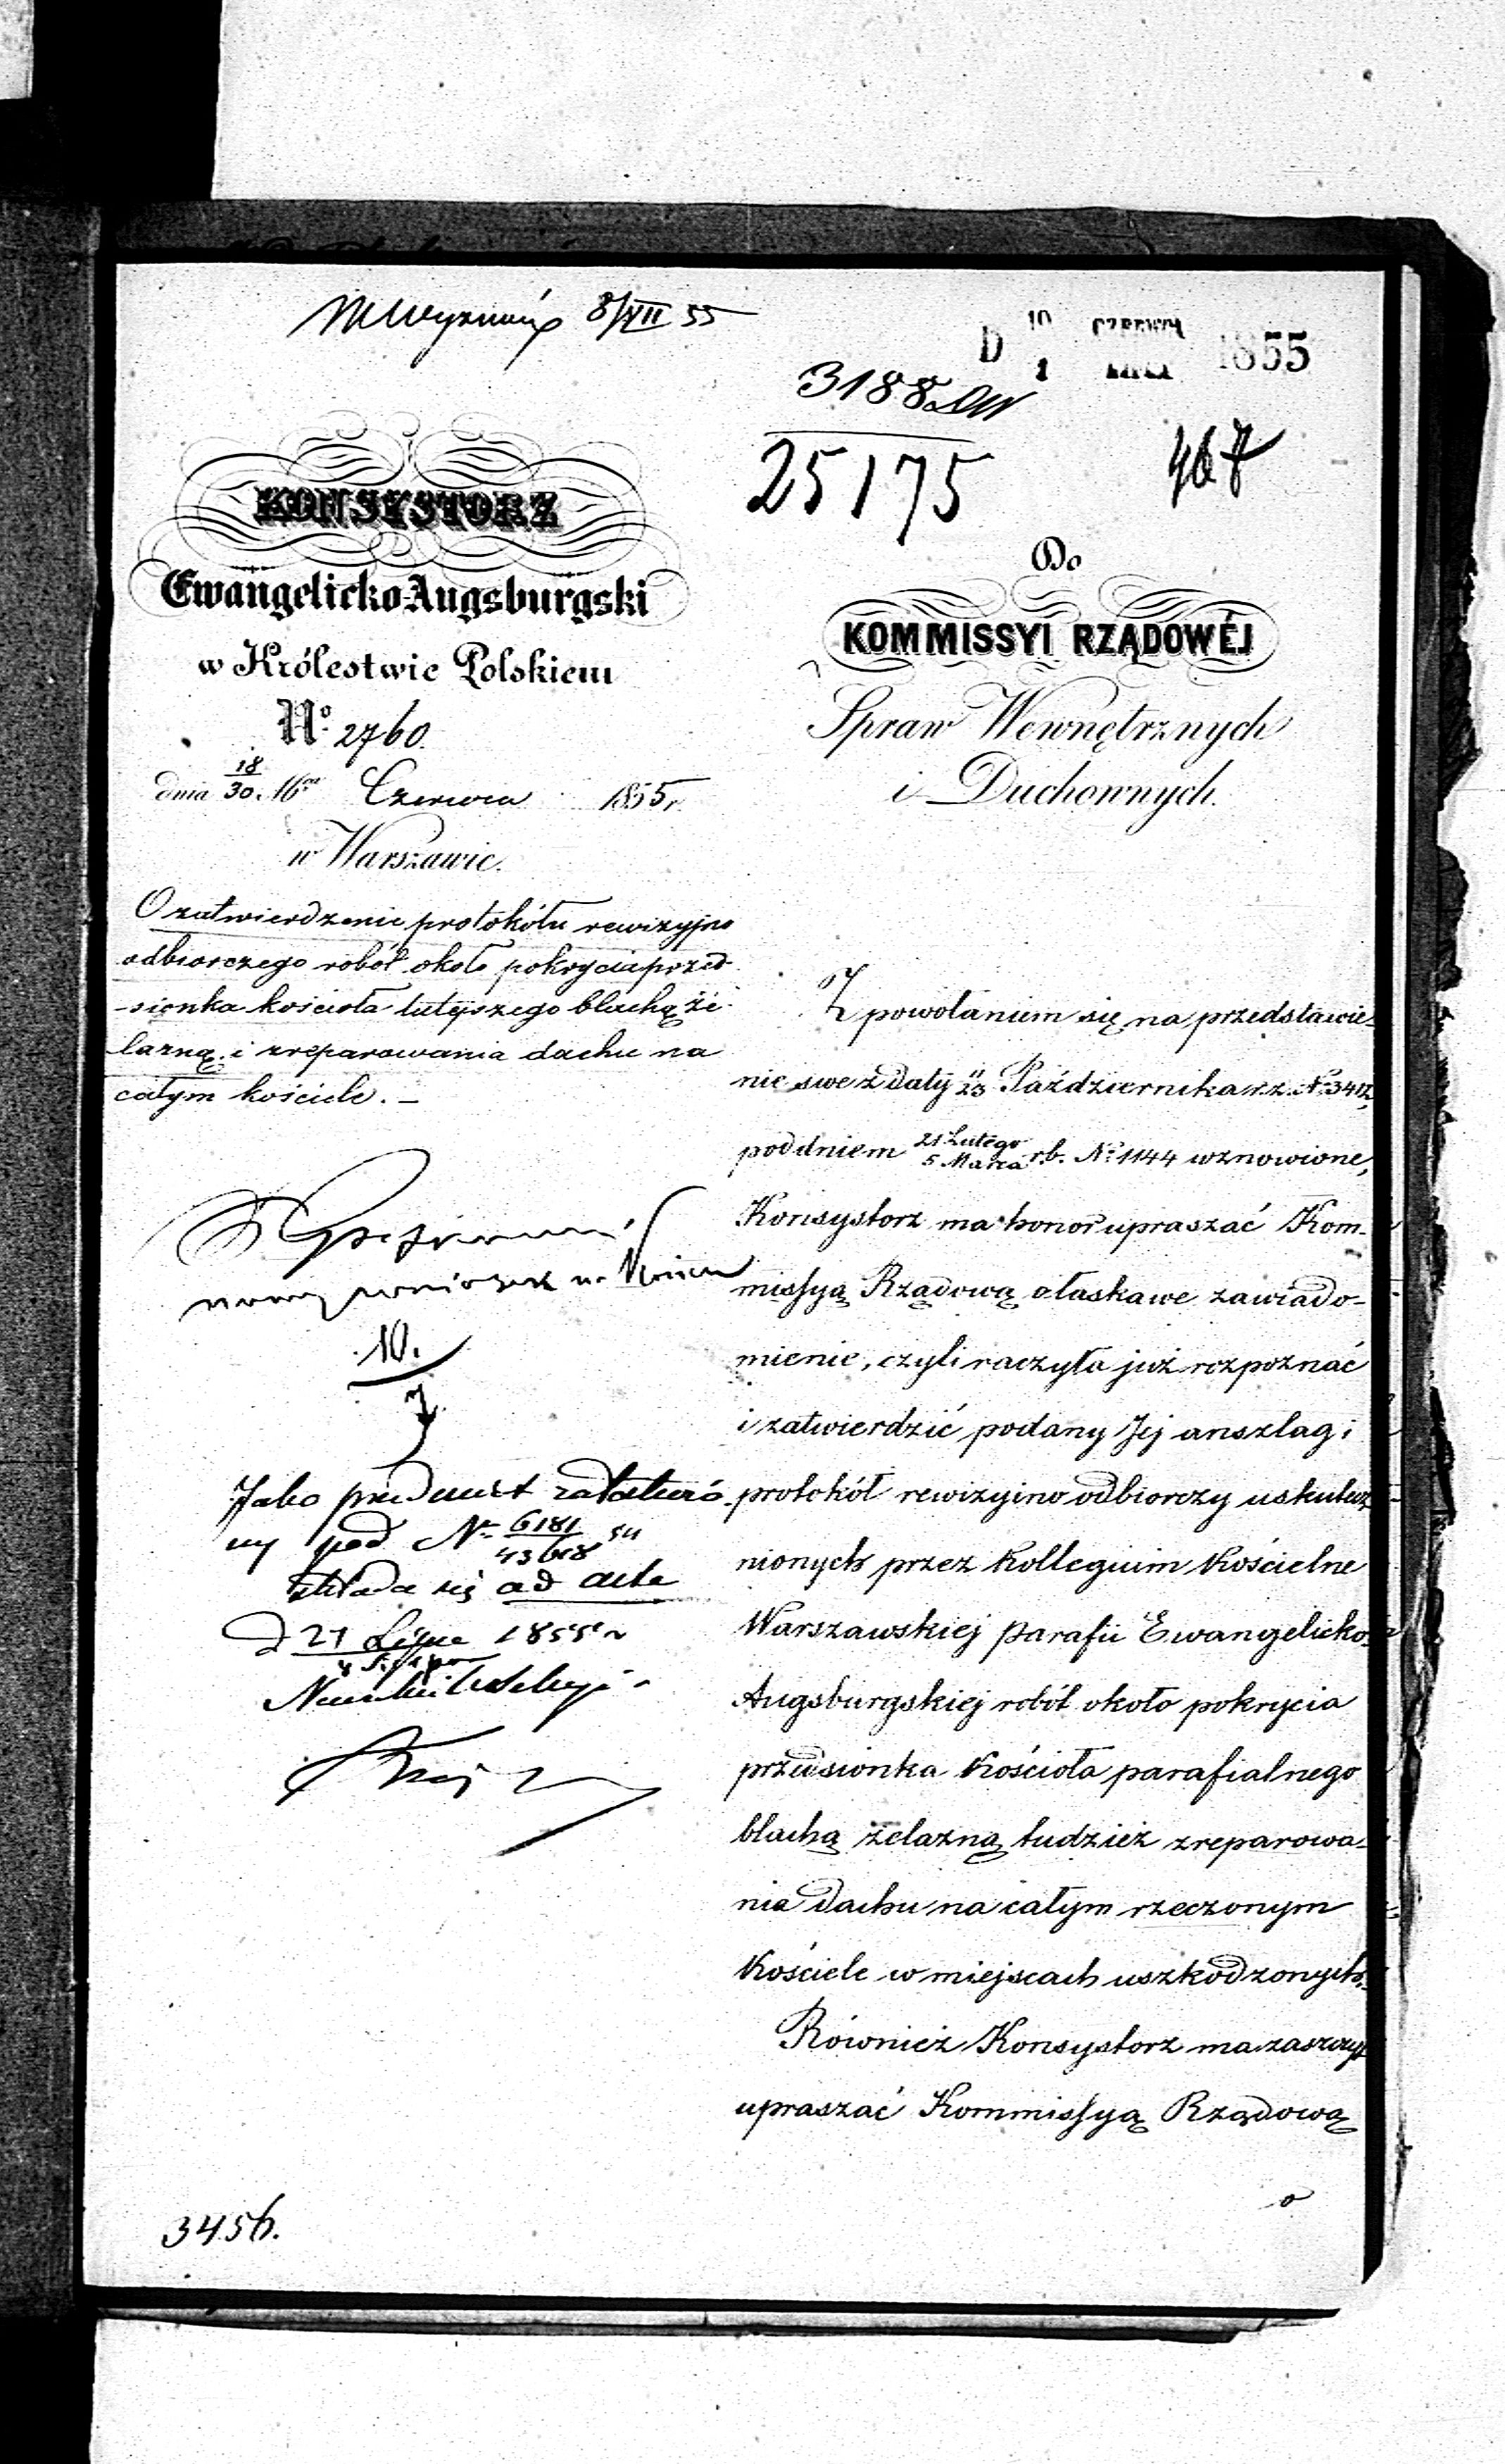 8/XII 55
D 19 CZERWCA 1 LIPCA 1855
3188
25175
467
KONSYSTORZ
Ewangelicko-Augsburgski
w Królestwie Polskiem
No. 2760.
dnia 18/30. Czerwca 1855 r.
w Warszawie.
O zatwierdzenie protokółu rewizyjno
odbiorczego robót około pokrycia przed-
-sionka kościoła tutejszego blachą że-
lazną i zreparowania dachu na
całym kościele. –
10.
Jako przedmiot załatwio-
ny pod No
składa się ad acta
d 21 Lipca 1855 r
Naczelnik Sekcyi
3456.
Do
KOMMISSYI RZĄDOWÉJ
Spraw Wewnętrznych
i Duchownych.
Z powołaniem się na przedstawie-
nie swe z daty 11/23 Października r.z. No 3412,
pod dniem 21 Lutego/5 Marca r.b. No 1144 wznowione,
Konsystorz ma honor upraszać Kom-
missyą Rządową o łaskawe zawiado-
mienie, czyli raczyła już rozpoznać
i zatwierdzić podany Jej anszlag i
protokół rewizyjno odbiorczy uskutecz-
nionych przez Kollegium Kościelne
Warszawskiej parafii Ewangelicko-
Augsburgskiej robót około pokrycia
przedsionka Kościoła parafialnego
blachą żelazną tudzież zreparowa-
nia dachu na całym rzeczonym
Kościele w miejscach uszkodzonych.
Również Konsystorz ma zaszczyt
upraszać Kommissyą Rządową
o